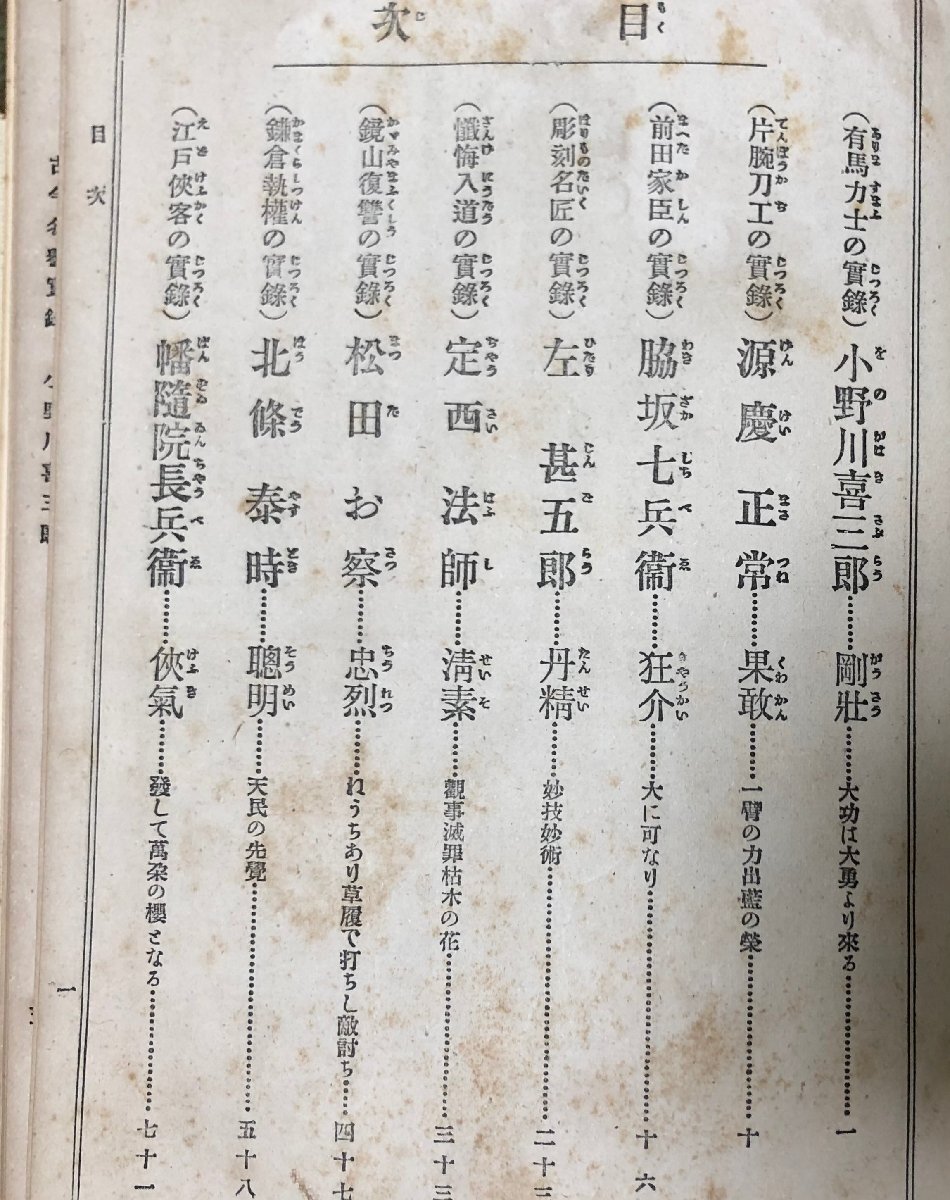 目次
(有馬力士の實錄)小野川喜三郎………剛壯………大功は大勇より來る………一
(片腕刀工の實錄)源慶正常………果敢………一臂の力出藍の榮………十
(前田家臣の實錄)脇坂七兵衞………狂介………大に可なり………十六
(彫刻名匠の實錄)左甚五郎………丹精………妙技妙術………二十三
(懺悔入道の實錄)定西法師………淸素………觀事滅罪枯木の花………三十三
(鏡山復讐の實錄)松田お察………忠烈………れうちあり草履で打ちし敵討ち………四十七
(鎌倉執權の實錄)北條泰時………聰明………天民の先覺………五十八
(江戸俠客の實錄)幡隨院長兵衞………俠氣………發して萬朶の櫻となる………七十一
目次 一
小野川喜三郎